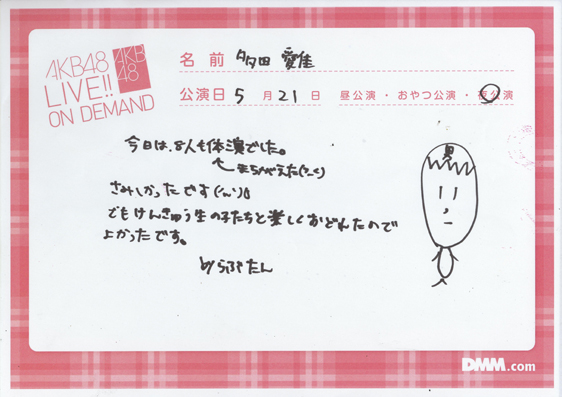 AKB48
LIVE!!
ON DEMAND
AKB
48
名前 多田 愛佳
公演日 5 月 21 日 昼公演・おやつ公演・夜公演
今日は、8人も体演でした。
さみしかったです
でもけんきゅう生の子たちと楽しくおどれたので
よかったです。
by らぶたん
男
DMM.com